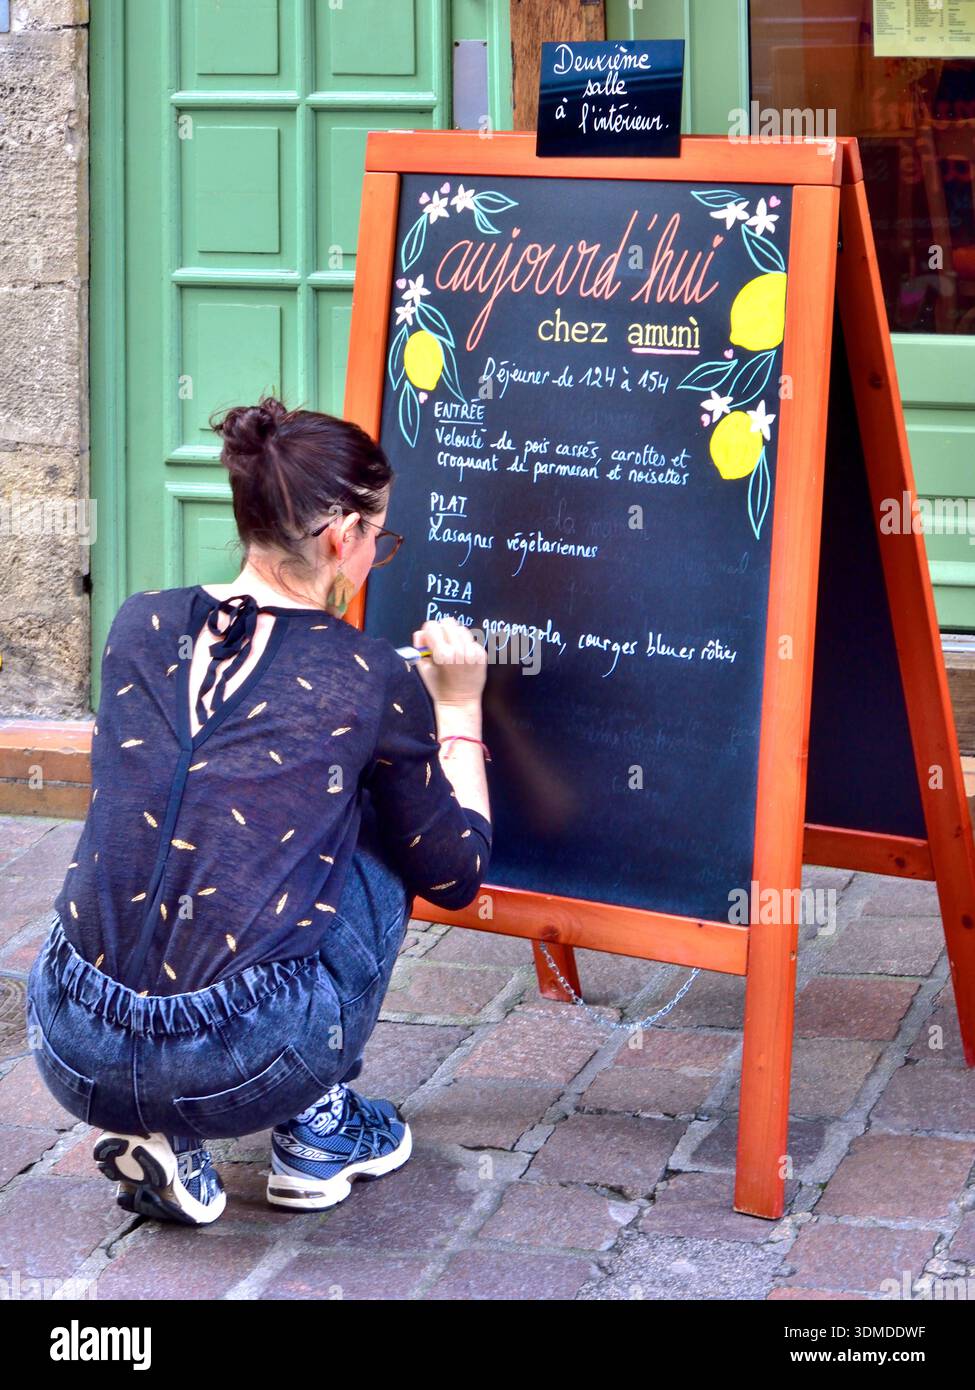 Deuxième
salle
à l'intérieur.
aujourd'hui
chez amunì
Déjeuner de 12H à 15H
ENTRÉE
Velouté de pois cassés, carottes et
croquant de parmesan et noisettes
PLAT
Lasagnes végétariennes
PIZZA
gorgonzola, courges bleues rôties
alamy
Image ID: 3DMDDWF
www.alamy.com